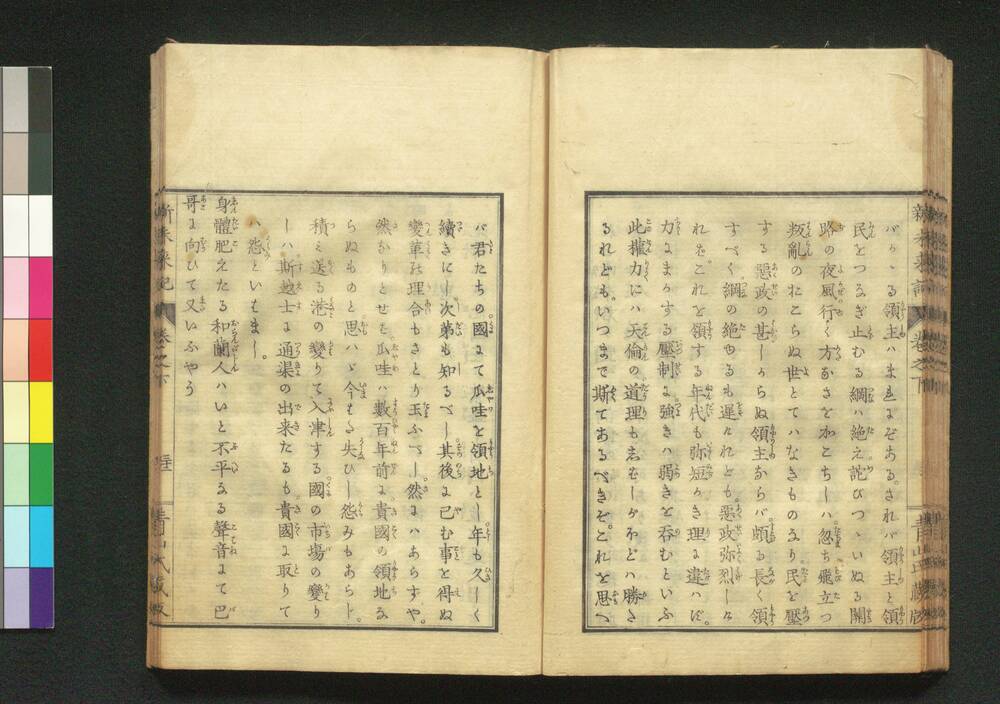 バかゝる領主ハまれにぞある。されバ領主と領
民をつなぎ止むる綱ハ絶え詫びつゝいぬる開
路の夜風行く方なさをかこちしハ忽ち飛立つ
叛亂のおこらぬ世とてハなきものなり民を壓
する惡政の甚しからぬ領主ならバ頗る長く領
すべく綱の絶ゆるも遲けれども。惡政弥烈しけ
れバこれを領する年代も弥短かき理に違ハず。
力にまかする壓制に強きハ弱きを呑むといふ
此權力にハ天倫の道理も志バしがほどハ勝さ
るれども。いつまで斯てあるべきぞ。これを思へ
バ君たちの國にて瓜哇を領地とし年も久しく
續きにし次第も知るべし其後に已む事を得ぬ
變革の理合もさとり玉ふべし。然にハあらずや。
然かりとせを瓜哇ハ數百年前に貴國の領地な
らぬものと思ハゞ今また失ひし怨みもあらじ。
積み送る港の變りて入津する國の市場の變り
しハ斯迦士に通渠の出来たるも貴國に取りて
ハ怨といはまし。
身體肥えたる和蘭人ハいと不平なる聲音にて巴
哥に向ひて又いふやう
新未來記
巻之下
青山氏藏版